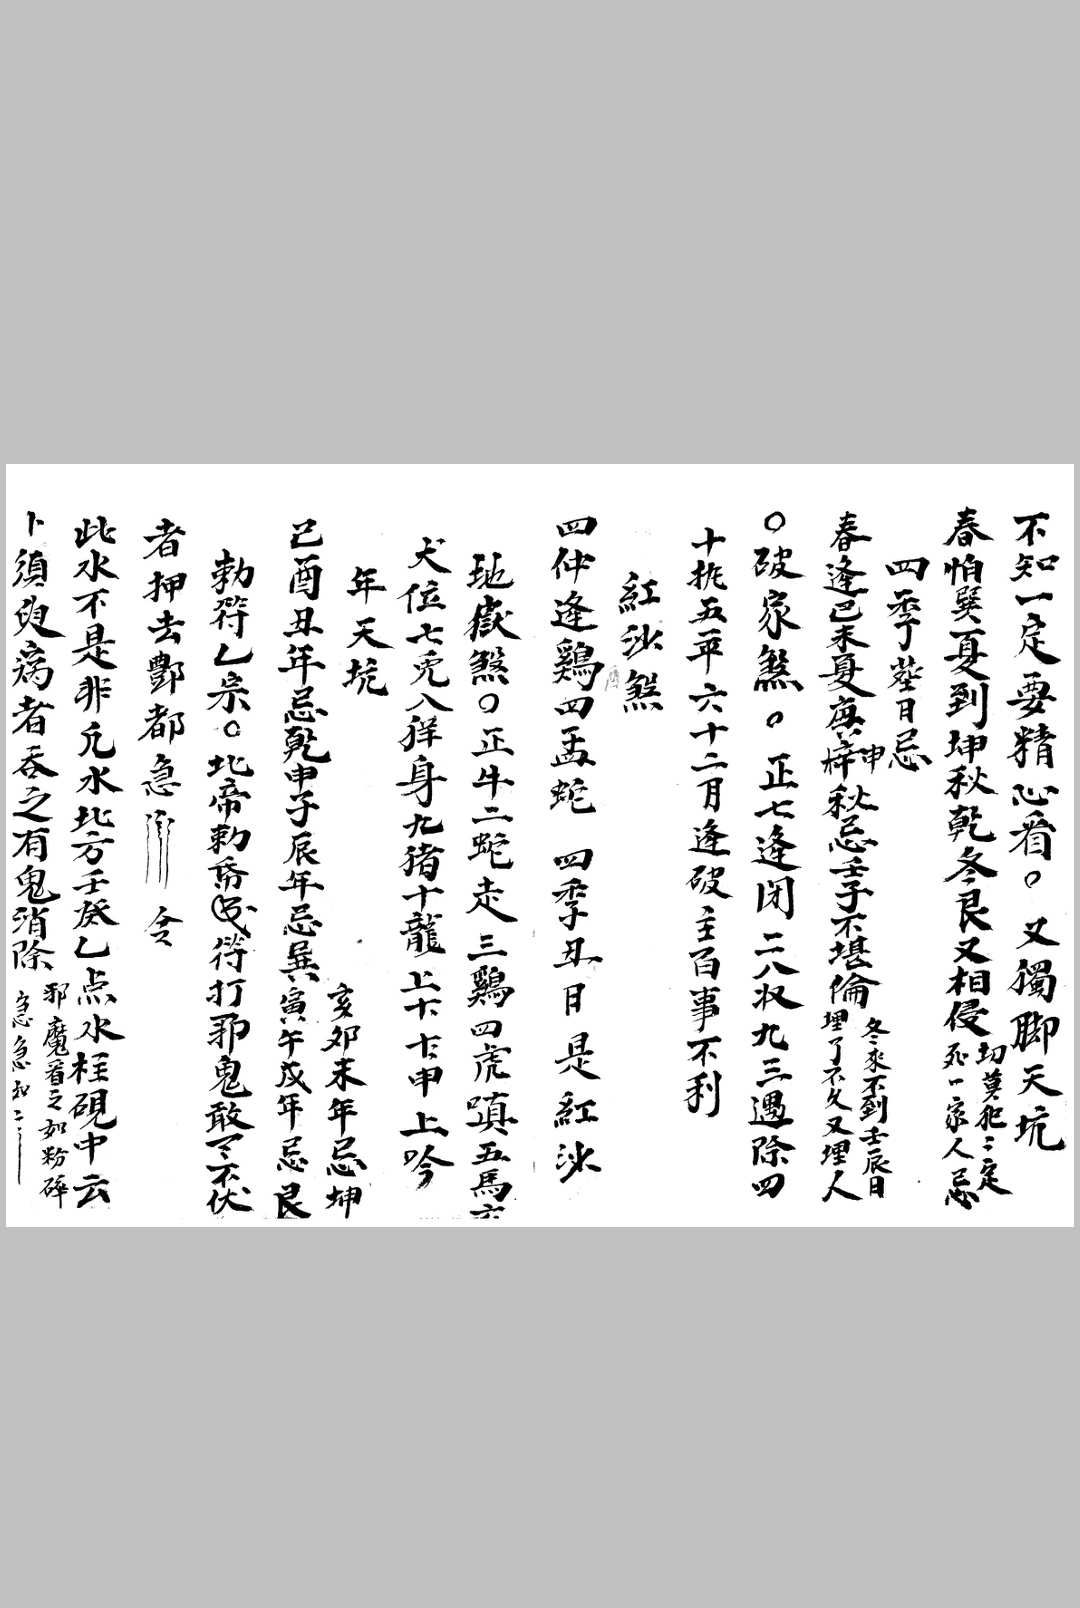 不知一定要精心看。又獨脚天坑
春怕巽夏到坤秋乾冬艮又相侵
切莫犯三定
死一家人忌
四季塟日忌
春逢巳未夏寅申
梓秋忌壬子不堪倫
冬來不到壬辰日
埋了不久又埋人
○破家煞。正七逢闭二八收九三遇除四
十挑五平六十二月逢破主百事不利
紅沙煞
四仲逢鷄四孟蛇 四季丑日是紅沙
地獄煞○正牛二蛇走三鷄四虎嗔五馬六
犬位七兎八徉身九猪十龍上十十申上吟
年天坑
己酉丑年忌乾申子辰年忌巽
亥卯未年忌坤
寅午戌年忌艮
勅符乙宗○北帝勅符打邪鬼敢不伏
者押去酆都急 令
此水不是非凡水北方壬癸乙点水柱硯中云
卜須臾病者吞之有鬼消除
邪魔看之如粉碎
急急